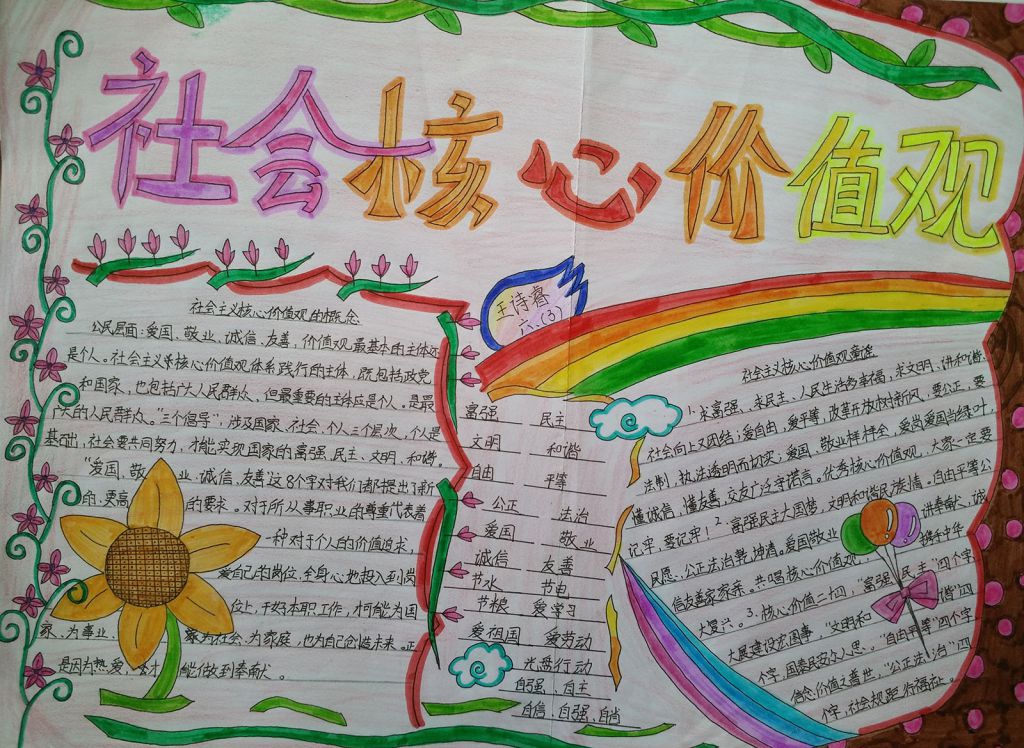 社会核心价值观
王诗睿
六.(3)
社会主义核心价值观的概念
公民层面:爱国、敬业、诚信、友善,价值观最基本的主体还
是个人。社会主义核心价值观体系践行的主体,既包括政党
和国家,也包括广大人民群众,但最重要的主体应是个人。是最
广大的人民群众。“三个倡导”:涉及国家、社会、个人三个层次,个人是
基础,社会要共同努力,才能实现国家的富强、民主、文明、和谐。
“爱国、敬业、诚信、友善”这8个字对我们都提出了新
的、更高的要求。对于所从事职业的尊重代表着
一种对于个人的价值追求,
爱自己的岗位,全身心地投入到岗
位上,干好本职工作,才可能为国
家、为事业、家为社会、为家庭,也为自己创造未来。正
是因为热爱,才能做到奉献。
富强 民主
文明 和谐
自由 平等
公正 法治
爱国 敬业
诚信 友善
节水 节电
节粮 爱学习
爱祖国 爱劳动
光盘行动
自强、自主
自信、自强、自尚
社会主义核心价值观童谣
1.求富强、求民主、人民生活考幸福,求文明、讲和谐、
社会向上又团结;爱自由、爱平等,改革开放树新风,要公正、要
法制,执法透明而切实;爱国、敬业样样全,爱岗爱国当绿叶,
懂诚信,懂友善,交友广泛守诺言。优秀核心价值观,大家一定要
记牢,要记牢!2.富强民主人国梦,文明和谐民族情。自由平等公
民愿,公正法治乾坤清。爱国敬业 讲奉献、诚
信友善家家亲。共唱核心价值观, 携手中华
大复兴。3.核心价值二十四,“富强 民主”四个字
大展建设宏图事,“文明和 谐”四
个字,国泰民安众人思。“自由平等”四个字
信念价值之普世。“公正法 治”四
个字,社会规距行福祉。